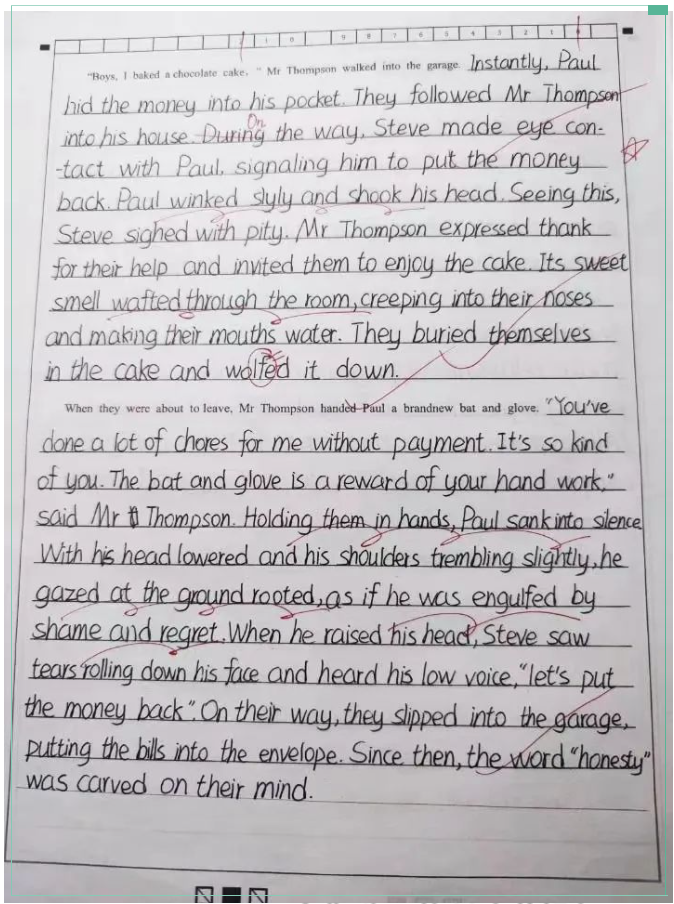 1 0 9 8 7 6 5 4 3 2 1
"Boys, I baked a chocolate cake. " Mr Thompson walked into the garage. Instantly, Paul
hid the money into his pocket. They followed Mr Thompson
On
into his house. During the way, Steve made eye con-
-tact with Paul, signaling him to put the money
back. Paul winked slyly and shook his head. Seeing this,
Steve sighed with pity. Mr Thompson expressed thank
for their help and invited them to enjoy the cake. Its sweet
smell wafted through the room, creeping into their noses
and making their mouths water. They buried themselves
in the cake and wolfed it down.
When they were about to leave, Mr Thompson handed Paul a brandnew bat and glove. "You've
done a lot of chores for me without payment. It's so kind
of you. The bat and glove is a reward of your hand work."
said Mr Thompson. Holding them in hands, Paul sank into silence
With his head lowered and his shoulders trembling slightly, he
gazed at the ground rooted, as if he was engulfed by
shame and regret. When he raised his head, Steve saw
tears rolling down his face and heard his low voice, "let's put
the money back". On their way, they slipped into the garage,
putting the bills into the envelope. Since then, the word "honesty"
was carved on their mind.